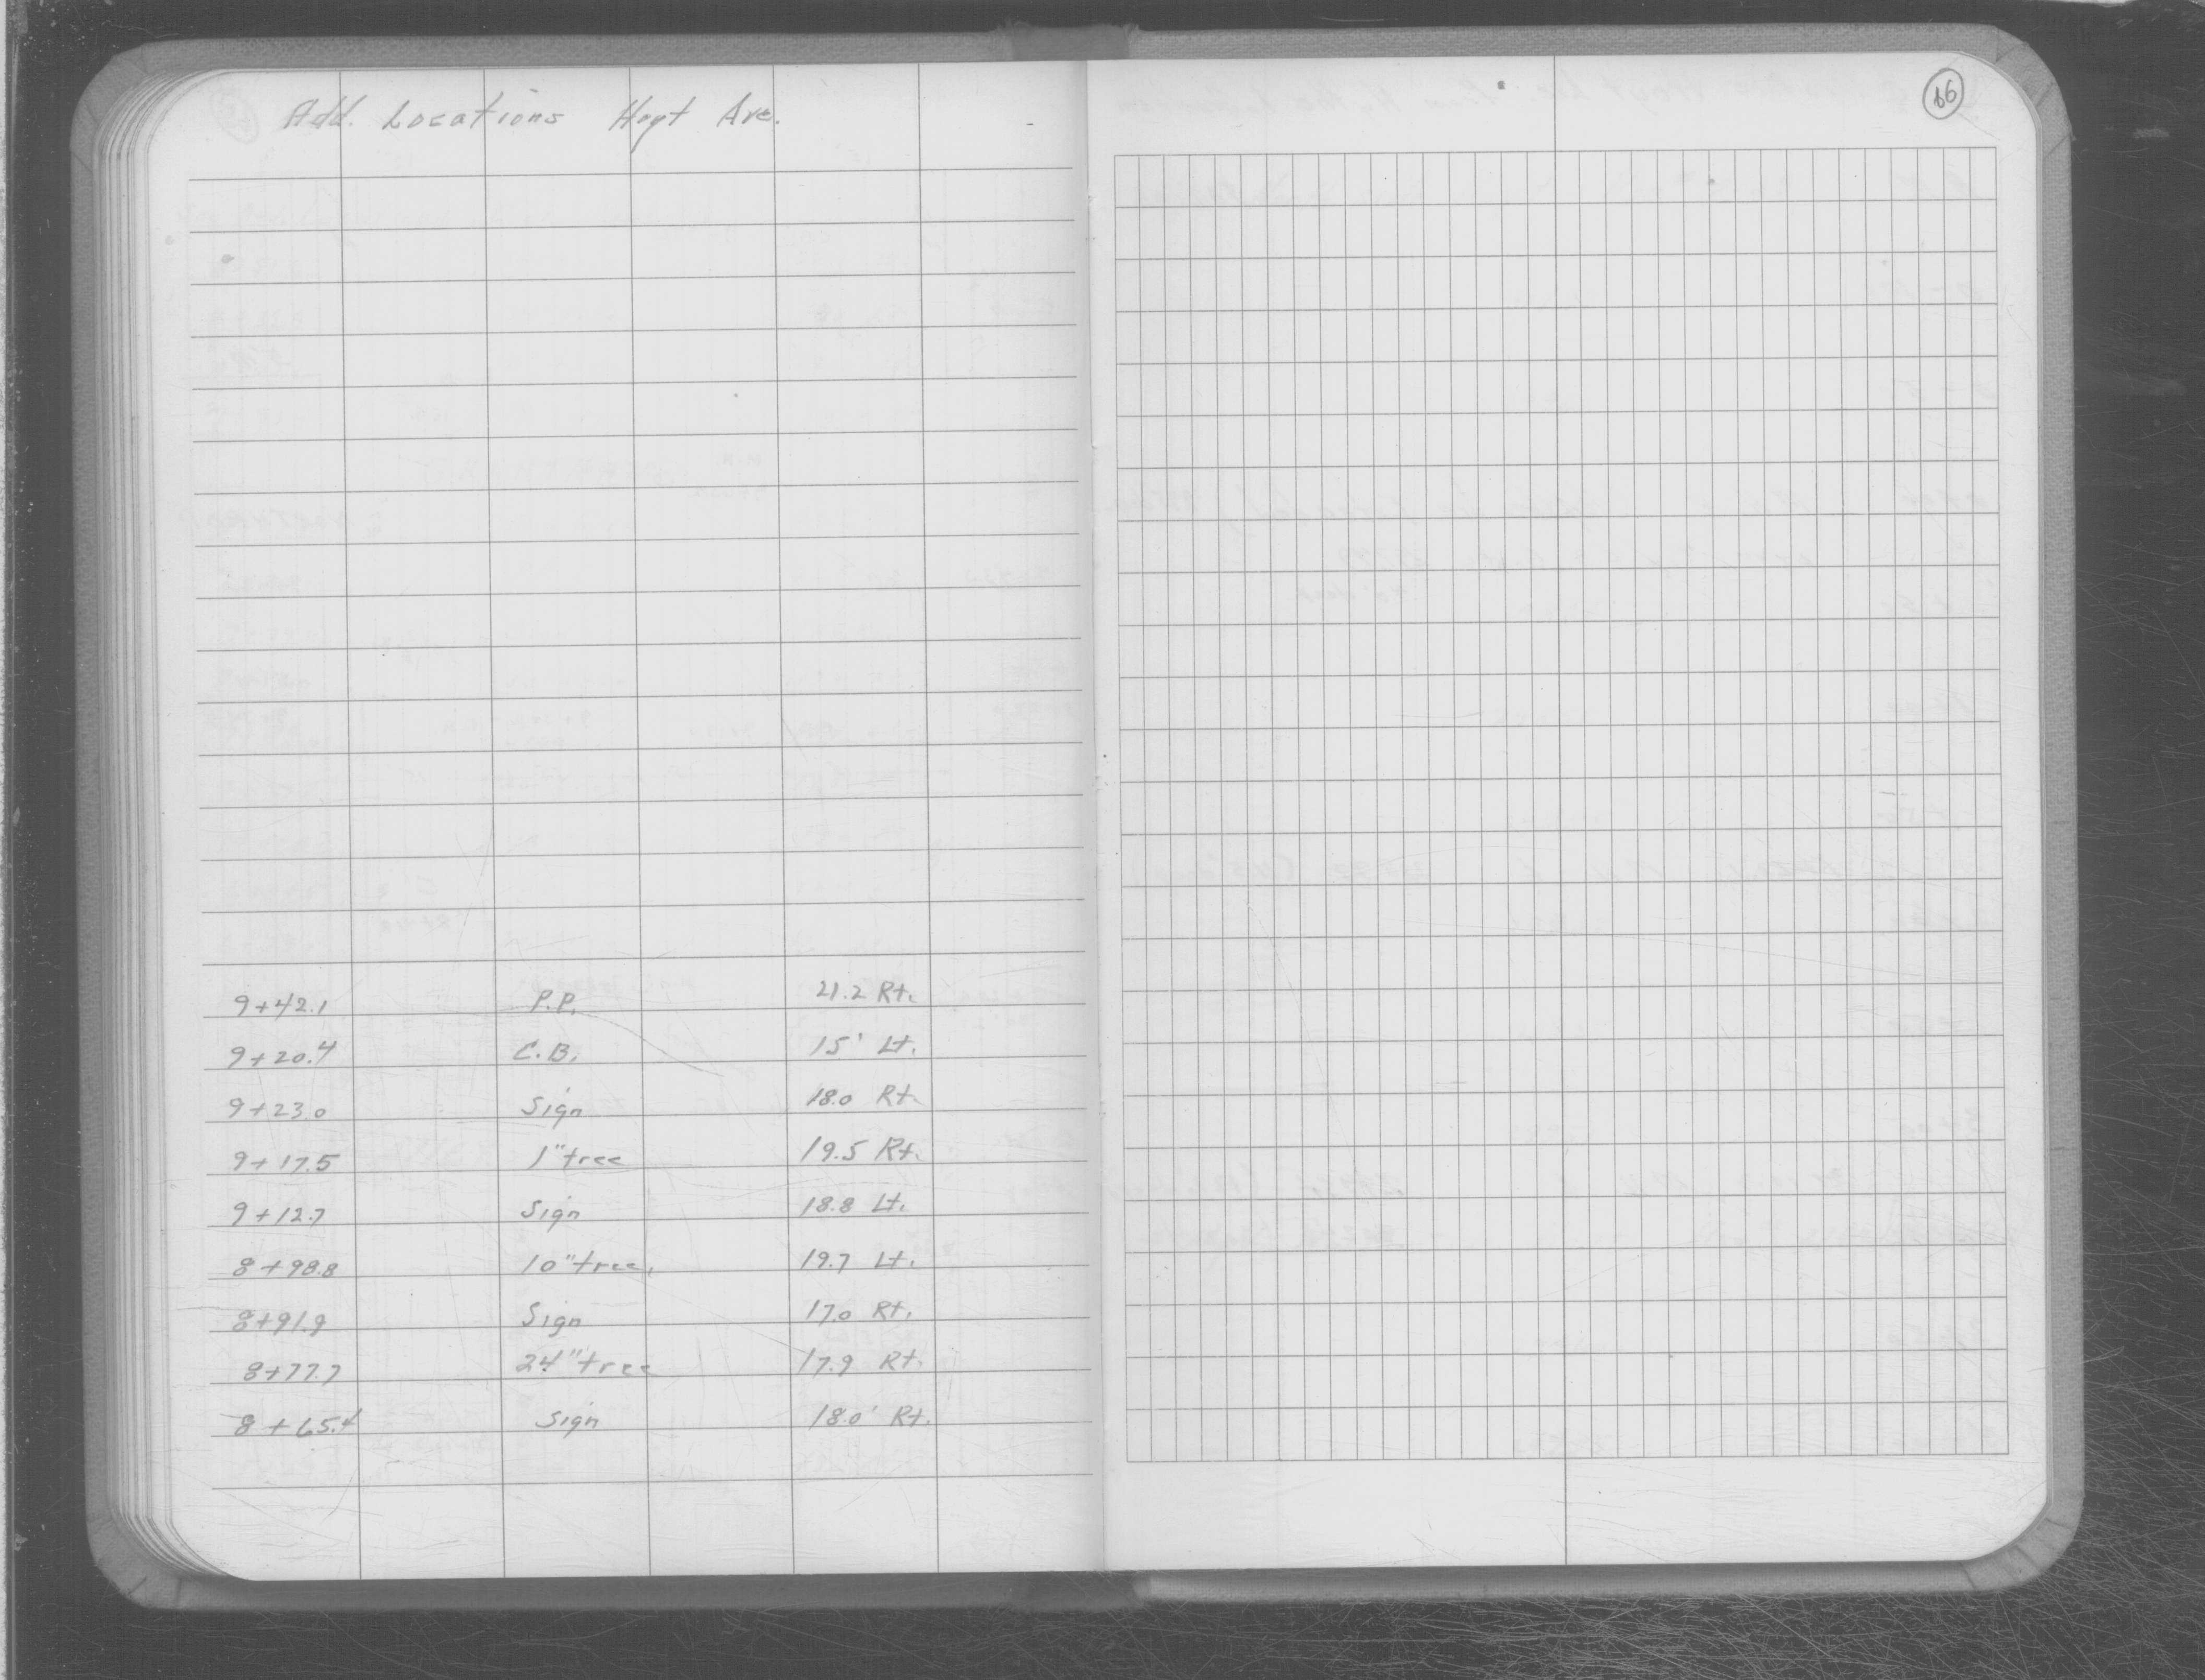 Add. Locations Hoyt Ave.
16
9+42.1 P.P. 21.2 Rt.
9+20.4 C.B. 15' Lt.
9+23.0 Sign 18.0 Rt.
9+17.5 1" tree 19.5 Rt.
9+12.7 Sign 18.8 Lt.
8+98.8 10" tree. 19.7 Lt.
8+91.9 Sign 17.0 Rt.
8+77.7 24" tree 17.9 Rt.
8+65.4 Sign 18.0' Rt.